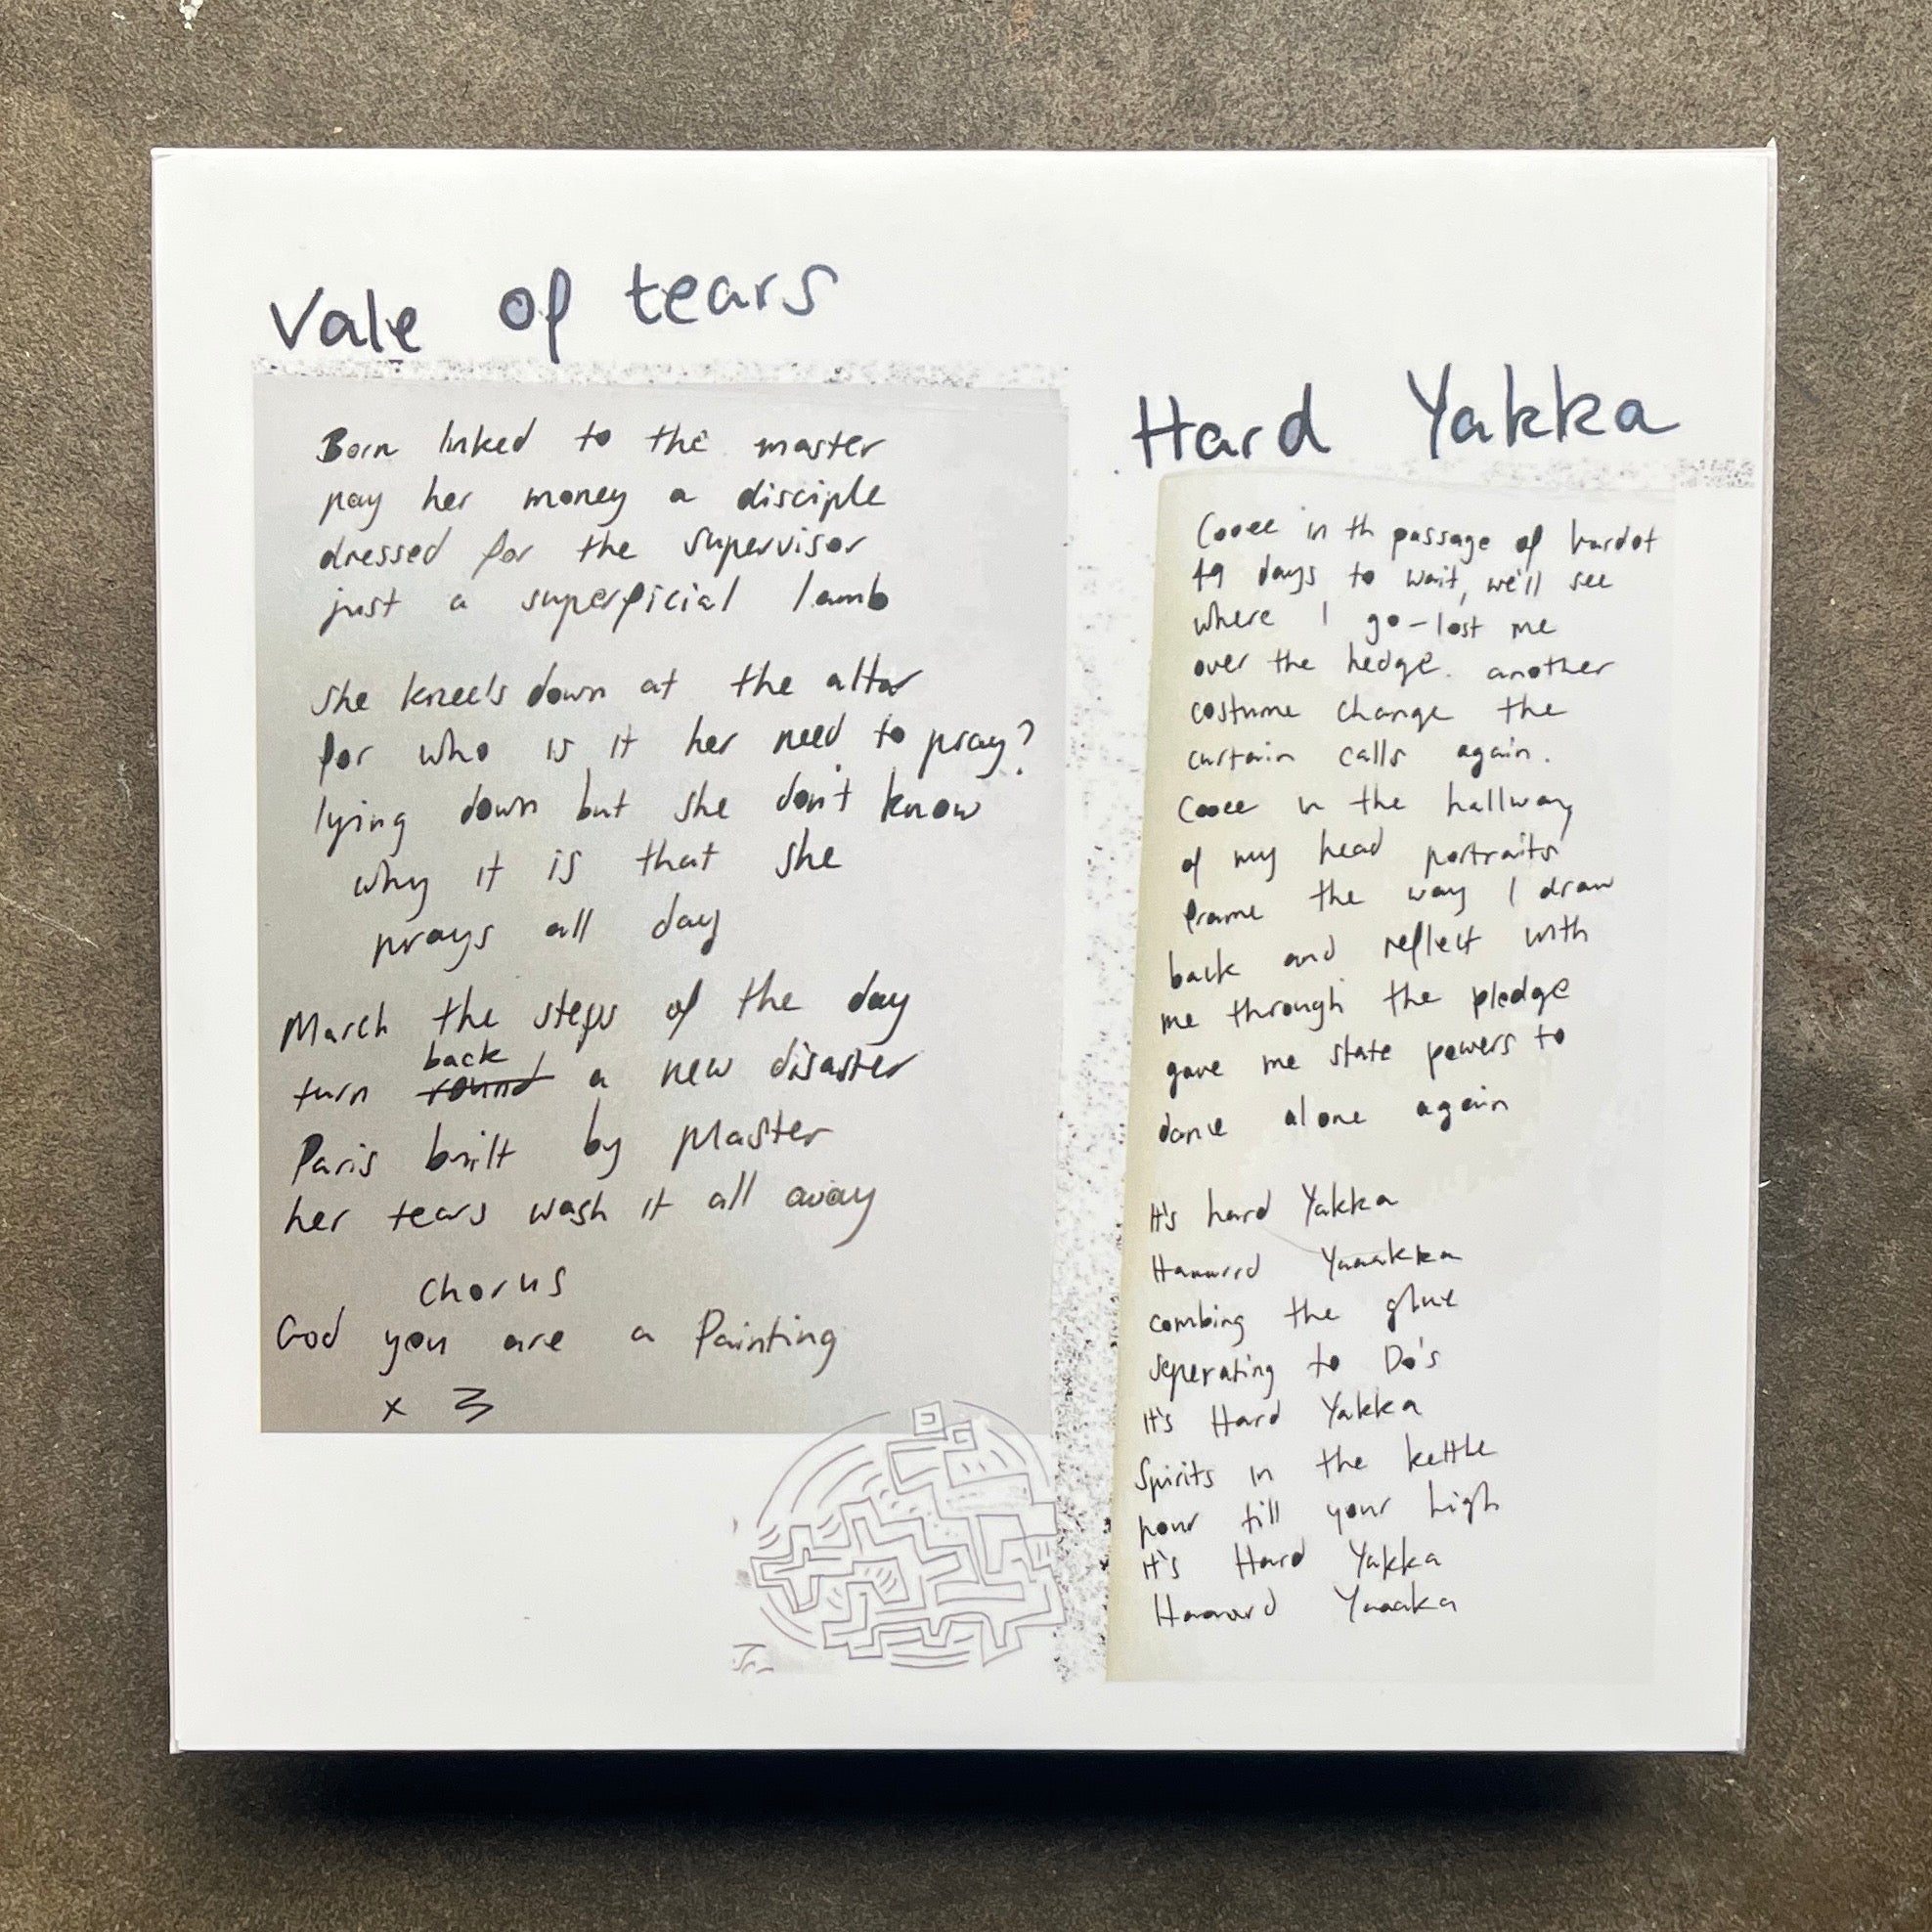 Vale of tears
Born linked to the master
pay her money a disciple
dressed for the supervisor
just a superficial lamb
She kneels down at the altar
for who is it her need to pray?
lying down but she don't know
why it is that she
prays all day
March the steps of the day
back
turn round a new disaster
Paris built by Master
her tears wash it all away
Chorus
God you are a Painting
x 3
Hard Yakka
Cooee in th passage of bardot
49 days to wait, we'll see
where I go - lost me
over the hedge. another
costume change the
curtain calls again.
Cooee in the hallway
of my head portraits
frame the way I draw
back and reflect with
me through the pledge
gave me state powers to
dance alone again
It's hard Yakka
Haaarrd Yaaakka
combing the glue
seperating to Do's
It's Hard Yakka
Spirits in the kettle
pour till your high
It's Hard Yakka
Haaard Yaaaka